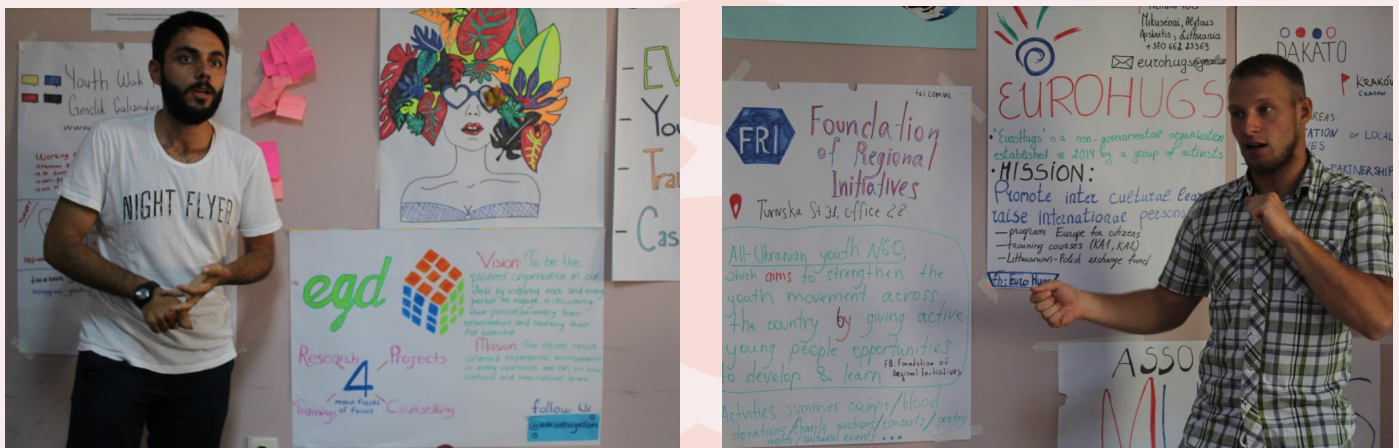 Youth Wak
Gençlik Çalışmaları
www
NIGHT FLYER
egd
Vision: To be the
pioneer organisation in our
field by inspiring each and every
person we engage, a
their passion, meeting their
expectations and realising their
full potential
Mission: The
oriented experiential environment
in every operation we run in local,
national and international levels.
Research
Projects
4
main fields
of focus
Trainings
Counselling
follow Us
facebook
instagram
- EV
- You
- Tra
- Cas
fri.com.ua
FRI
Foundation
of Regional
Initiatives
Turivska St 31, office 28
All-Ukranian youth NGO,
which aims to strengthen the
youth movement across
the country by giving active
young people opportunities
to develop & learn
FB: Foundation of
Regional Initiatives
Activities: summer camps/blood
donations/charity auctions/concerts/poetry
nights/cultural events...
Mikusėnai, Alytaus
Apskritis, Lithuania
+370 662 23369
eurohugs@gmail.com
EUROHUGS
• "EuroHugs" is a non-governmental organization
established in 2014 by a group of activists
• MISSION:
Promote inter cultural lear
raise international persona
— program Europe for citizens
— training courses (KA1, KA2)
— Lithuanian-Polish exchange fund
fb: Euro Hugs
DAKATO
KRAKÓW
AREAS:
TATION OF LOCAL
VES
PARTNERSHIP
ASSO